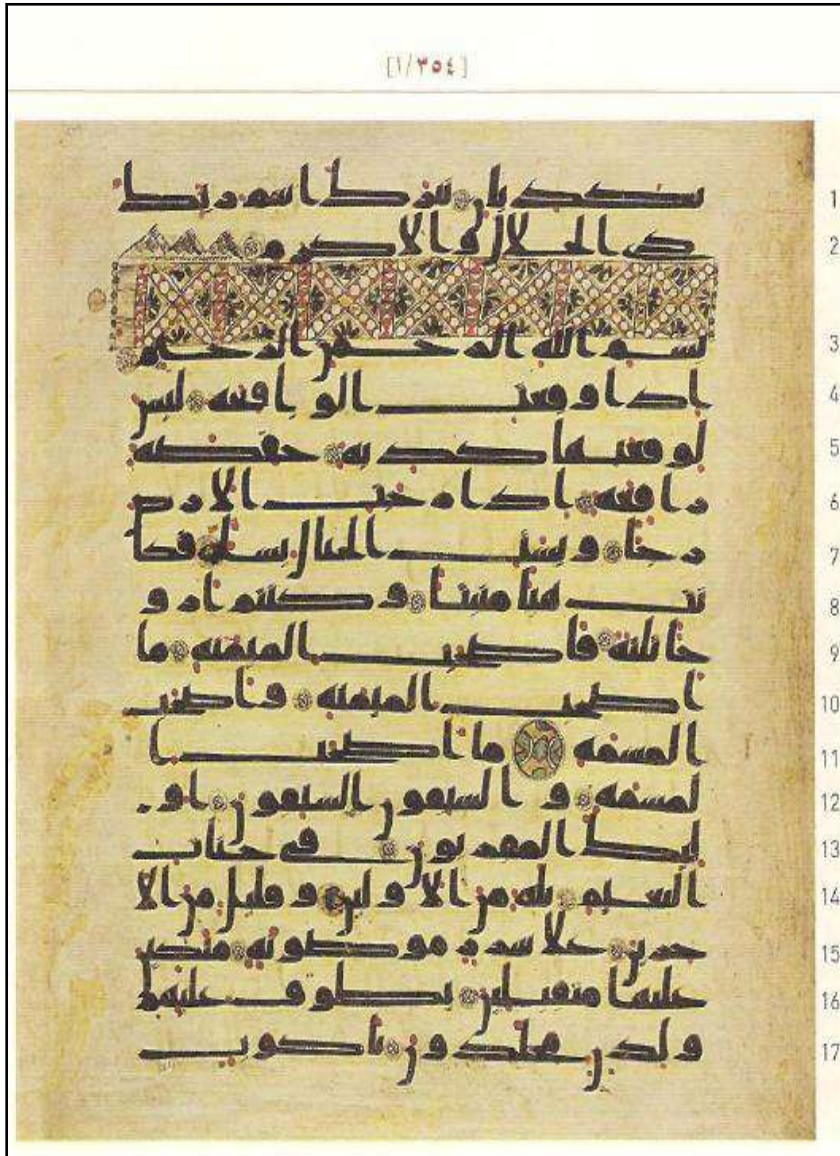 [١/٣٥٤]
تكذبان تبرك اسم ربك 1
ذى الجلل والاكرم 2
بسم الله الرحمن الرحيم 3
اذا وقعت الواقعة ليس 4
لوقعتها كذبة خفضة 5
رافعة اذا رجت الارض 6
رجا وبست الجبال بسا فكا 7
نت هبا منبثا وكنتم ازو 8
جا ثلثة فاصحب الميمنة ما 9
اصحب الميمنة واصحب 10
المشمة ما اصحب ا 11
لمشمة و السبقون السبقون او 12
ليك المقربون في جنات 13
النعيم ثلة من الاولين وقليل من الا 14
خرين على سرر موضونة متكين 15
عليها متقبلين يطوف عليهم 16
ولدن مخلدون باكوب 17